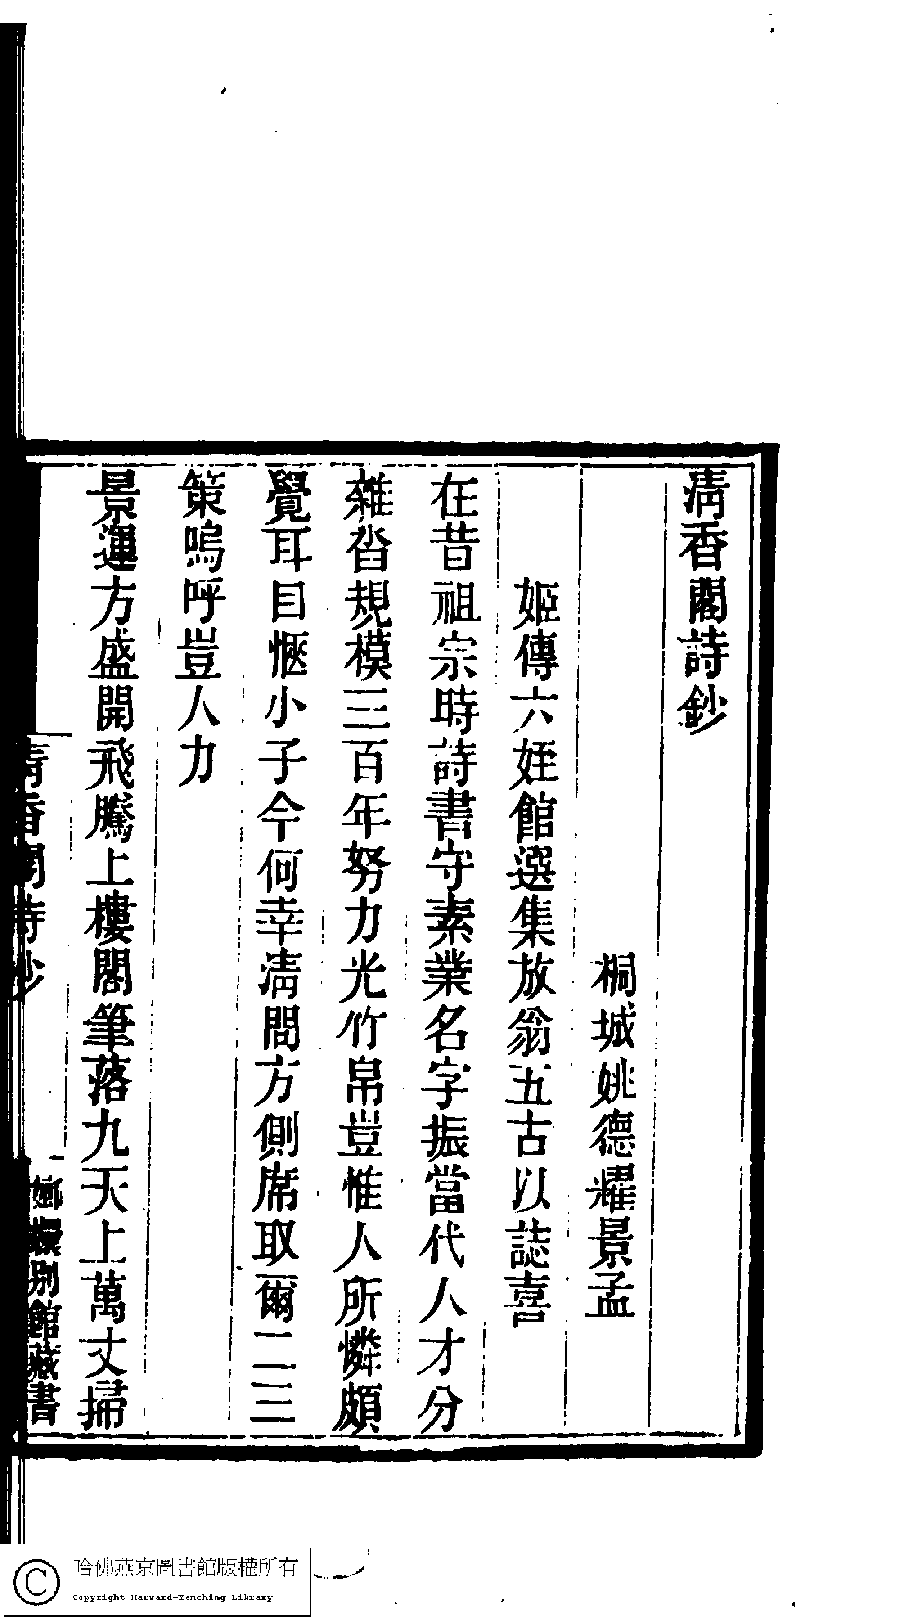 清香閣詩鈔
桐城姚德耀景孟
姬傳六姪館選集放翁五古以誌喜
在昔祖宗時詩書守素業名字振當代人才分
雜沓規模三百年努力光竹帛豈惟人所憐頗
覺耳目愜小子今何幸淸問方側席取爾二三
策嗚呼豈人力
景運方盛開飛騰上樓閣筆落九天上萬丈掃
清香閣詩鈔
一
嫏嬛別館藏書
哈佛燕京圖書館版權所有
Copyright Harvard-Yenching Library